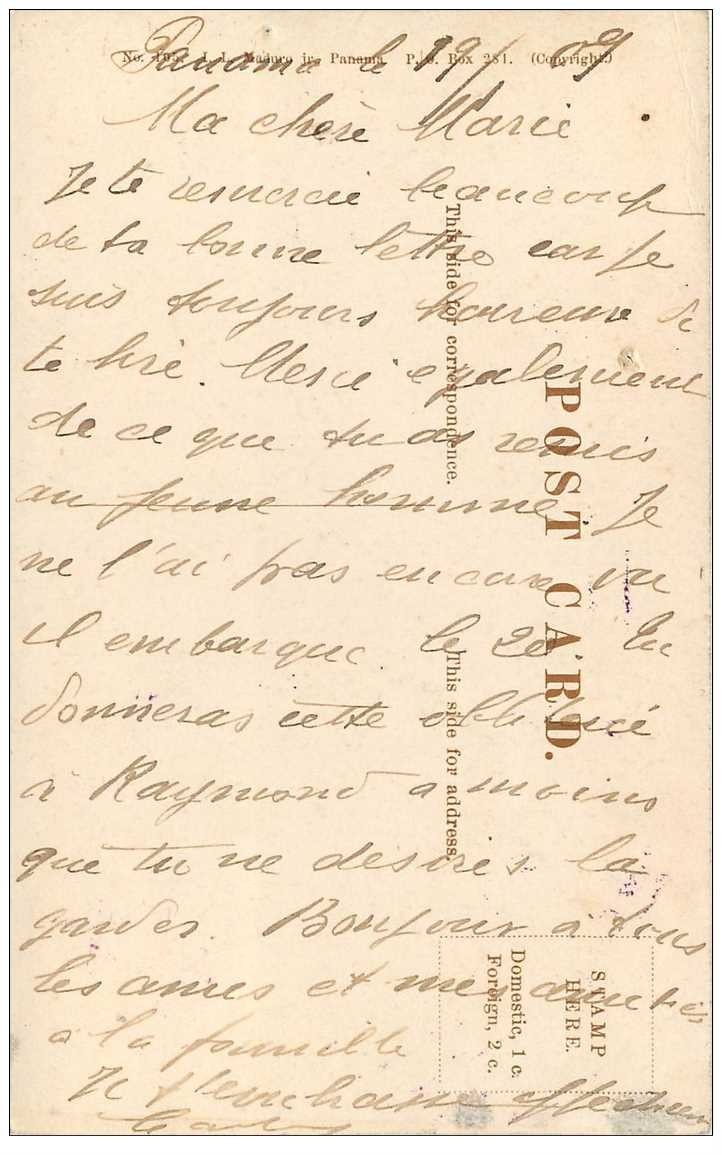 No. 105. I. L. Maduro jr. Panama. P. O. Box 281. (Copyright.)
Panama le 19/ 09
Ma chère Marie
Je te remercie beaucoup
de ta bonne lettre car je
suis toujours heureuse de
te lire. Merci également
de ce que tu as remis
au jeune homme Je
ne l'ai pas encore vu
il embarque le 20. Tu
donneras cette
à Raymond a moins
que tu ne desires la
garder. Bonjour à tous
les amies et mes amitiés
à la famille
Je t'embrasse
This side for correspondence.
POST CARD.
This side for address.
STAMP
HERE.
Domestic, 1 c.
Foreign, 2 c.